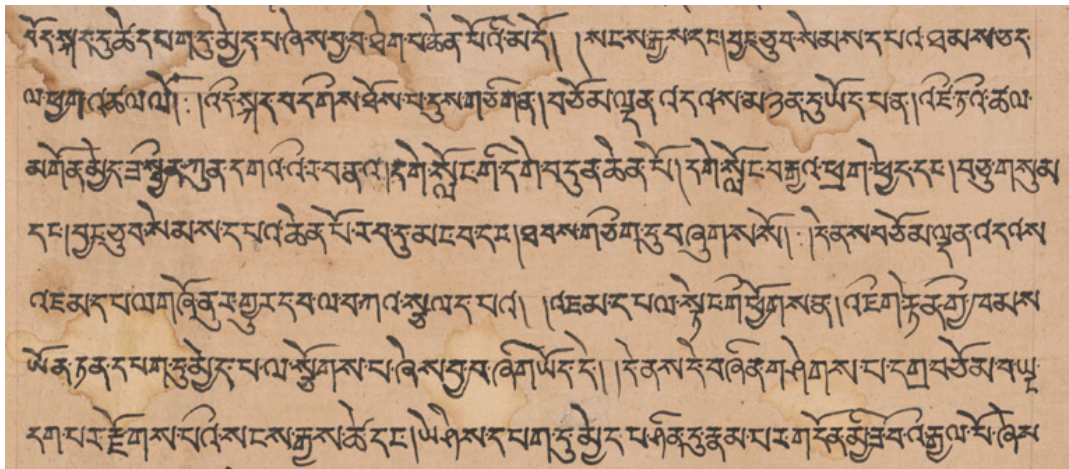 བོད་སྐད་དུ་ཚེ་དཔག་དུ་མྱེད་པ་ཞེས་བྱ་བ་ཐེག་པ་ཆེན་པོའི་མདོ། །སངས་རྒྱས་དང་།བྱང་ཆུབ་སེམས་དཔའ་ཐམས་ཅད་
ལ་ཕྱག་འཚལ་ལོ།།:།འདི་སྐད་བདགིས་ཐོས་པ་དུས་གཅིག་ན།བཅོམ་ལྡན་འདའས་མཉན་དུ་ཡོད་པ་ན།།འཛེ་ཏའི་ཚལ་
མགོན་མྱེད་ཟས་སྦྱིན་ཀུན་དགའི་འི་ར་བ་ན།དགེ་སློང་གི་དགེ་བདུན་ཆེན་པོ།དགེ་སློང་བརྒྱའ་ཕྲག་ཕྱེད་དང་།བཅུ་གསུམ
དང་།བྱང་ཆུབ་སེམས་དཔའ་ཆེན་པོ་རབ་དུ་མང་བ་དང་།ཐབས་གཅིག་དུ་བཞུགས་སོ།།:།དེ་ནས་བཅོམ་ལྡན་འདའས
འཇམ་དཔལ་གཞོ་ནུར་གྱུརད་པ་ལ་བཀའ་སྩལད་པའ། །འཇམ་དཔལ་སྟེང་གི་ཕྱོགས་ན།འཇིག་རྟེན་གྱི་ཁམས
ཡོན་ཏན་དཔག་དུ་མྱེད་པ་ལ་སྩོགས་པ་ཞེས་བྱ་བ་ཞིག་ཡོད་དེ། །དེ་ནས་དེ་བཞིན་གཤེགས་པ་དགྲ་བཅོམ་བ་ཡང་
དག་པར་རྫོགས་པའི་སངས་རྒྱས་ཚེ་དང་།ཡེ་ཤེས་དཔག་དུ་མྱེད་པ་ཤིན་དུ་རྣམ་པར་གདོན་མྱི་ཟ་བའི་རྒྱལ་པོ་ཞེས